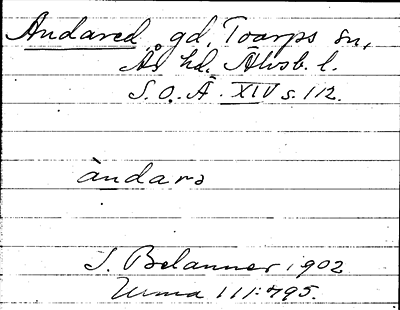 Andared gd, Toarps sn,
Ås hd. Älvsb. l.
S. O. Ä. XIV s. 112.
àndarə
J. Belanner 1902
111:795.